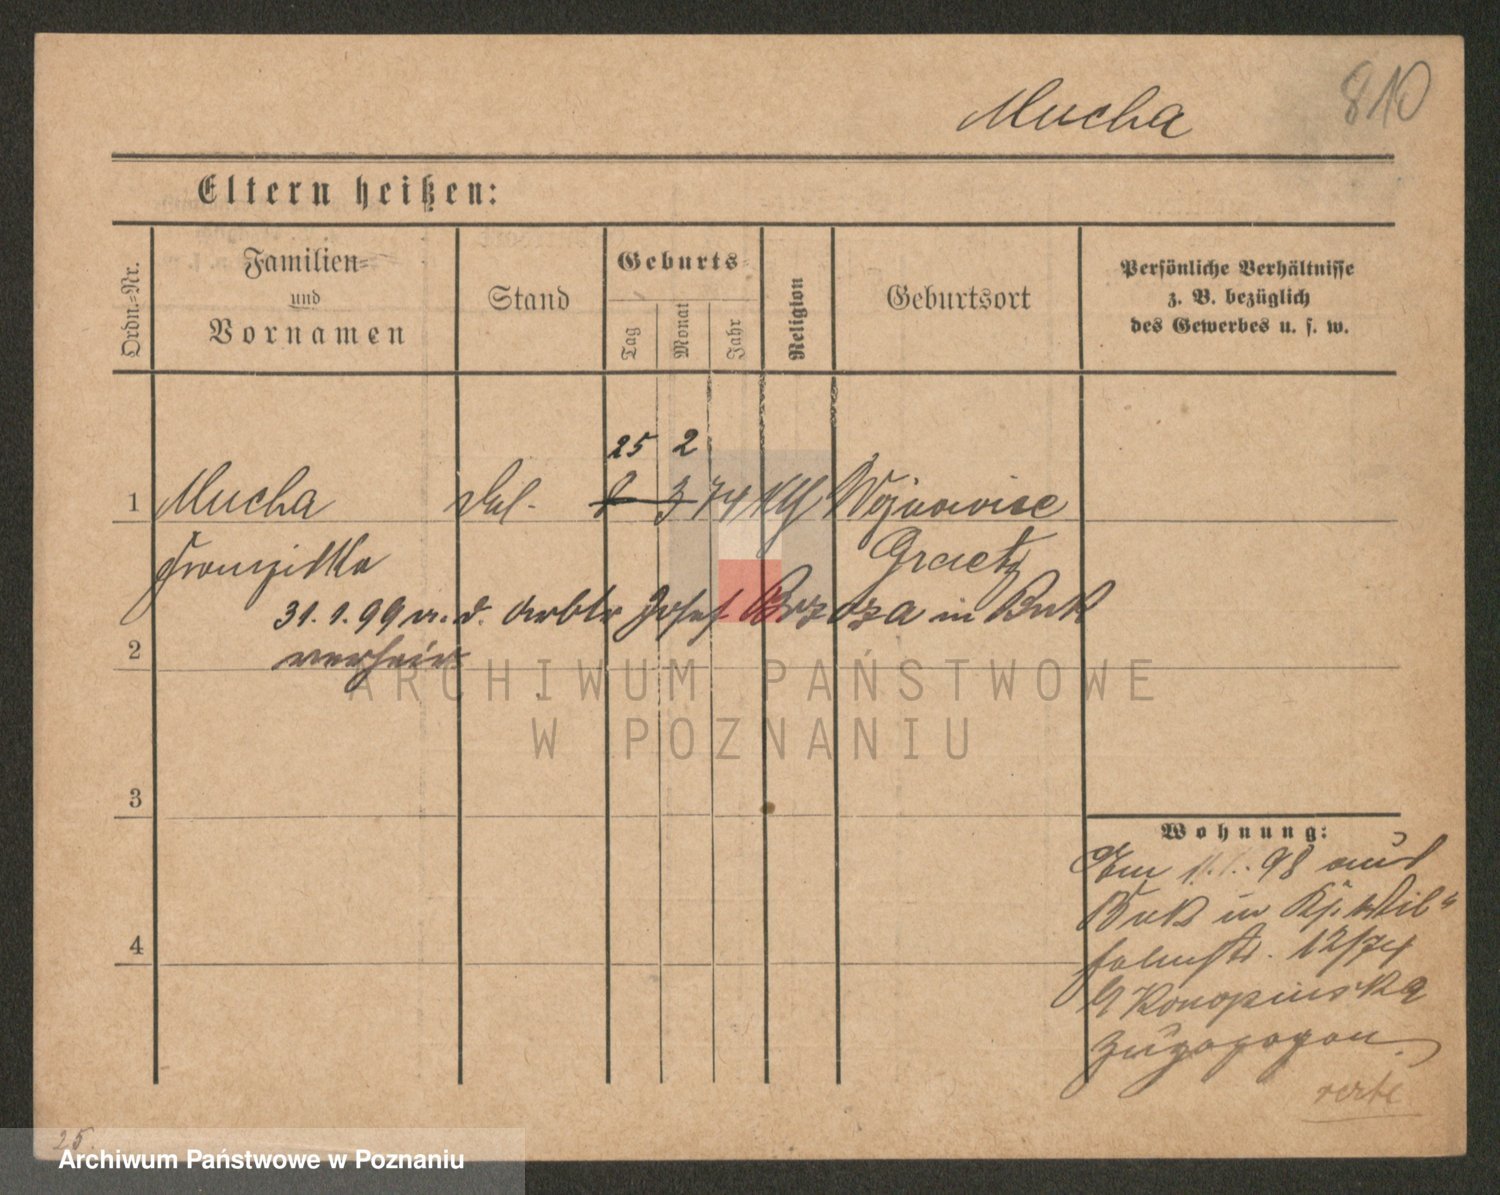 810
Mucha
Eltern heißen:
Ordn.-Nr.
Familien-
und
Vornamen
Stand
Geburts-
Tag
Monat
Jahr
Religion
Geburtsort
Persönliche Verhältnisse
z. B. bezüglich
des Gewerbes u. s. w.
25 2
1 Mucha 3 74 kth Wojnowice
Franziska Graetz
31.1.99 m. d. Arbtr Josef Brzoza in Buk
2 verheir.
ARCHIWUM PAŃSTWOWE
W POZNANIU
3
Wohnung:
Am 1.1.98 aus
Buk in Wil-
helmstr. 12/74
Konopinska
zugezogen.
verte
4
25.
Archiwum Państwowe w Poznaniu